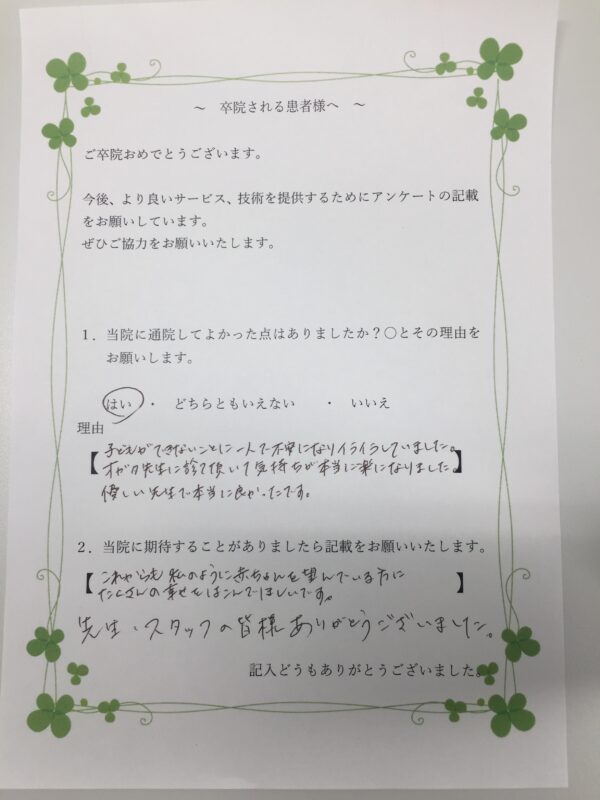 ～　卒院される患者様へ　～
ご卒院おめでとうございます。
今後、より良いサービス、技術を提供するためにアンケートの記載
をお願いしています。
ぜひご協力をお願いいたします。
１．当院に通院してよかった点はありましたか？〇とその理由を
お願いします。
はい ・ どちらともいえない　・　いいえ
理由
【子どもができないことに一人で不安になりイライラしていました。
オガタ先生に診て頂いて気持ちが本当に楽になりました。】
優しい先生で本当に良かったです。
２．当院に期待することがありましたら記載をお願いいたします。
【これからも私のように赤ちゃんを望んでいる方に】
たくさんの幸せをはこんでほしいです。
先生・スタッフの皆様ありがとうございました。
記入どうもありがとうございました。